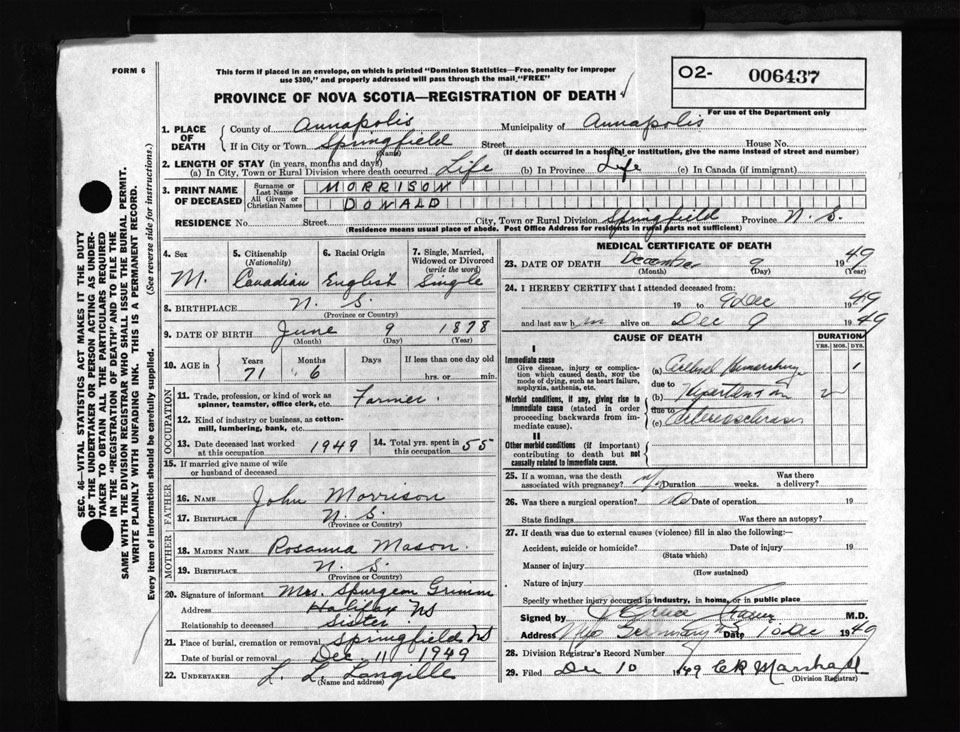 FORM 6
This form if placed in an envelope, on which is printed "Dominion Statistics—Free, penalty for improper
use $300," and properly addressed will pass through the mail "FREE"
O2- 006437
For use of the Department only
PROVINCE OF NOVA SCOTIA—REGISTRATION OF DEATH
1. PLACE OF DEATH { County of Annapolis Municipality of Annapolis
If in City or Town Springfield (Name) Street House No.
(If death occurred in a hospital or institution, give the name instead of street and number)
2. LENGTH OF STAY (in years, months and days)
(a) In City, Town or Rural Division where death occurred Life (b) In Province Life (c) In Canada (if immigrant)
3. PRINT NAME OF DECEASED { Surname or Last Name MORRISON
All Given or Christian Names DONALD
RESIDENCE No. Street City, Town or Rural Division Springfield Province N.S.
(Residence means usual place of abode. Post Office Address for residents in rural parts not sufficient)
4. Sex M.
5. Citizenship (Nationality) Canadian
6. Racial Origin English
7. Single, Married, Widowed or Divorced (write the word) Single
8. BIRTHPLACE N. S.
(Province or Country)
9. DATE OF BIRTH June 9 1878
(Month) (Day) (Year)
10. AGE in { Years Months Days If less than one day old
71 6 hrs. or min.
OCCUPATION
11. Trade, profession, or kind of work as
spinner, teamster, office clerk, etc. Farmer.
12. Kind of industry or business, as cotton-
mill, lumbering, bank, etc.
13. Date deceased last worked at this occupation 1949 14. Total yrs. spent in this occupation 55
15. If married give name of wife
or husband of deceased
FATHER
16. NAME John Morrison
17. BIRTHPLACE N. S.
(Province or Country)
MOTHER
18. MAIDEN NAME Rosanna Mason.
19. BIRTHPLACE N. S.
(Province or Country)
20. Signature of informant Mrs. Spurgeon Grimm
Address Halifax NS
Relationship to deceased Sister
21. Place of burial, cremation or removal Springfield NS
Date of burial or removal Dec 11 1949
22. UNDERTAKER L. L. Langille
(Name and address)
MEDICAL CERTIFICATE OF DEATH
23. DATE OF DEATH December 9 1949
(Month) (Day) (Year)
24. I HEREBY CERTIFY that I attended deceased from:
19 to 9 Dec 1949
and last saw h im alive on Dec 9 1949
CAUSE OF DEATH DURATION
YRS. MOS. DYS.
I
Immediate cause
Give disease, injury or complica-
tion which caused death, nor the
mode of dying, such as heart failure,
asphyxia, asthenia, etc.
(a) Cerebral Hemorrhage 1
due to
Morbid conditions, if any, giving rise to
immediate cause (stated in order
proceeding backwards from im-
mediate cause).
(b) Hypertension 2
due to
(c) Arteriosclerosis
II
Other morbid conditions (if important)
contributing to death but not
causally related to immediate cause.
25. If a woman, was the death associated with pregnancy? Duration weeks. Was there a delivery?
26. Was there a surgical operation? no Date of operation 19
State findings Was there an autopsy?
27. If death was due to external causes (violence) fill in also the following:—
Accident, suicide or homicide? Date of injury 19
(State which)
Manner of injury
(How sustained)
Nature of injury
Specify whether injury occurred in industry, in home, or in public place
Signed by M.D.
Address New Germany NS Date 10 Dec 1949
28. Division Registrar's Record Number
29. Filed Dec 10 1949 CR Marshall
(Division Registrar)
SEC. 46—VITAL STATISTICS ACT MAKES IT THE DUTY
OF THE UNDERTAKER OR PERSON ACTING AS UNDER-
TAKER TO OBTAIN ALL THE PARTICULARS REQUIRED
IN THE "REGISTRATION OF DEATH" AND TO FILE THE
SAME WITH THE DIVISION REGISTRAR WHO SHALL ISSUE THE BURIAL PERMIT.
WRITE PLAINLY WITH UNFADING INK. THIS IS A PERMANENT RECORD.
Every item of information should be carefully supplied. (See reverse side for instructions.)